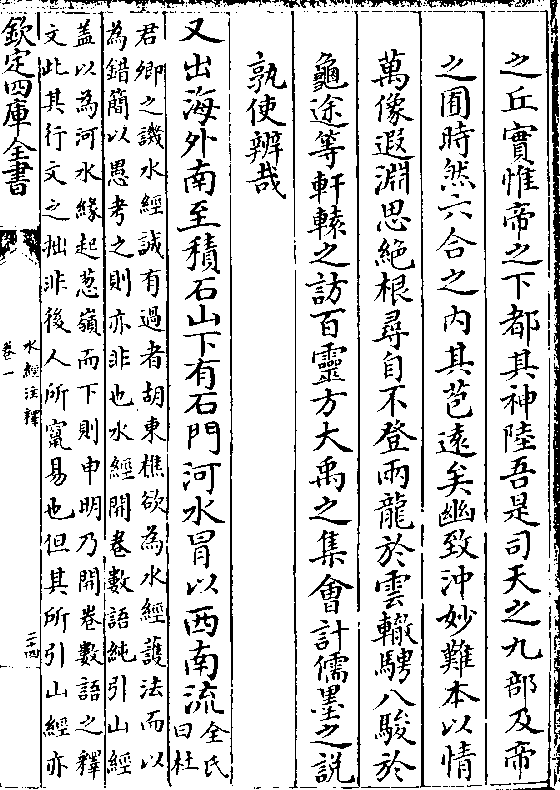 之丘實惟帝之下都其神陸吾是司天之九部及帝
之囿時然六合之内其苞遠矣幽致沖妙難本以情
萬像遐淵思絶根尋自不登兩龍於雲轍騁八駿於
龜途等軒轅之訪百靈方大禹之集會計儒墨之説
孰使辨哉
又出海外南至積石山下有石門河水冒以西南流
全氏
曰杜
君卿之譏水經誠有過者胡東樵欲為水經護法而以
為錯簡以愚考之則亦非也水經開卷數語純引山經
蓋以為河水緣起葱嶺而下則申明乃開卷數語之釋
文此其行文之拙非後人所竄易也但其所引山經亦
欽定四庫全書
水經注釋
卷一
二十四